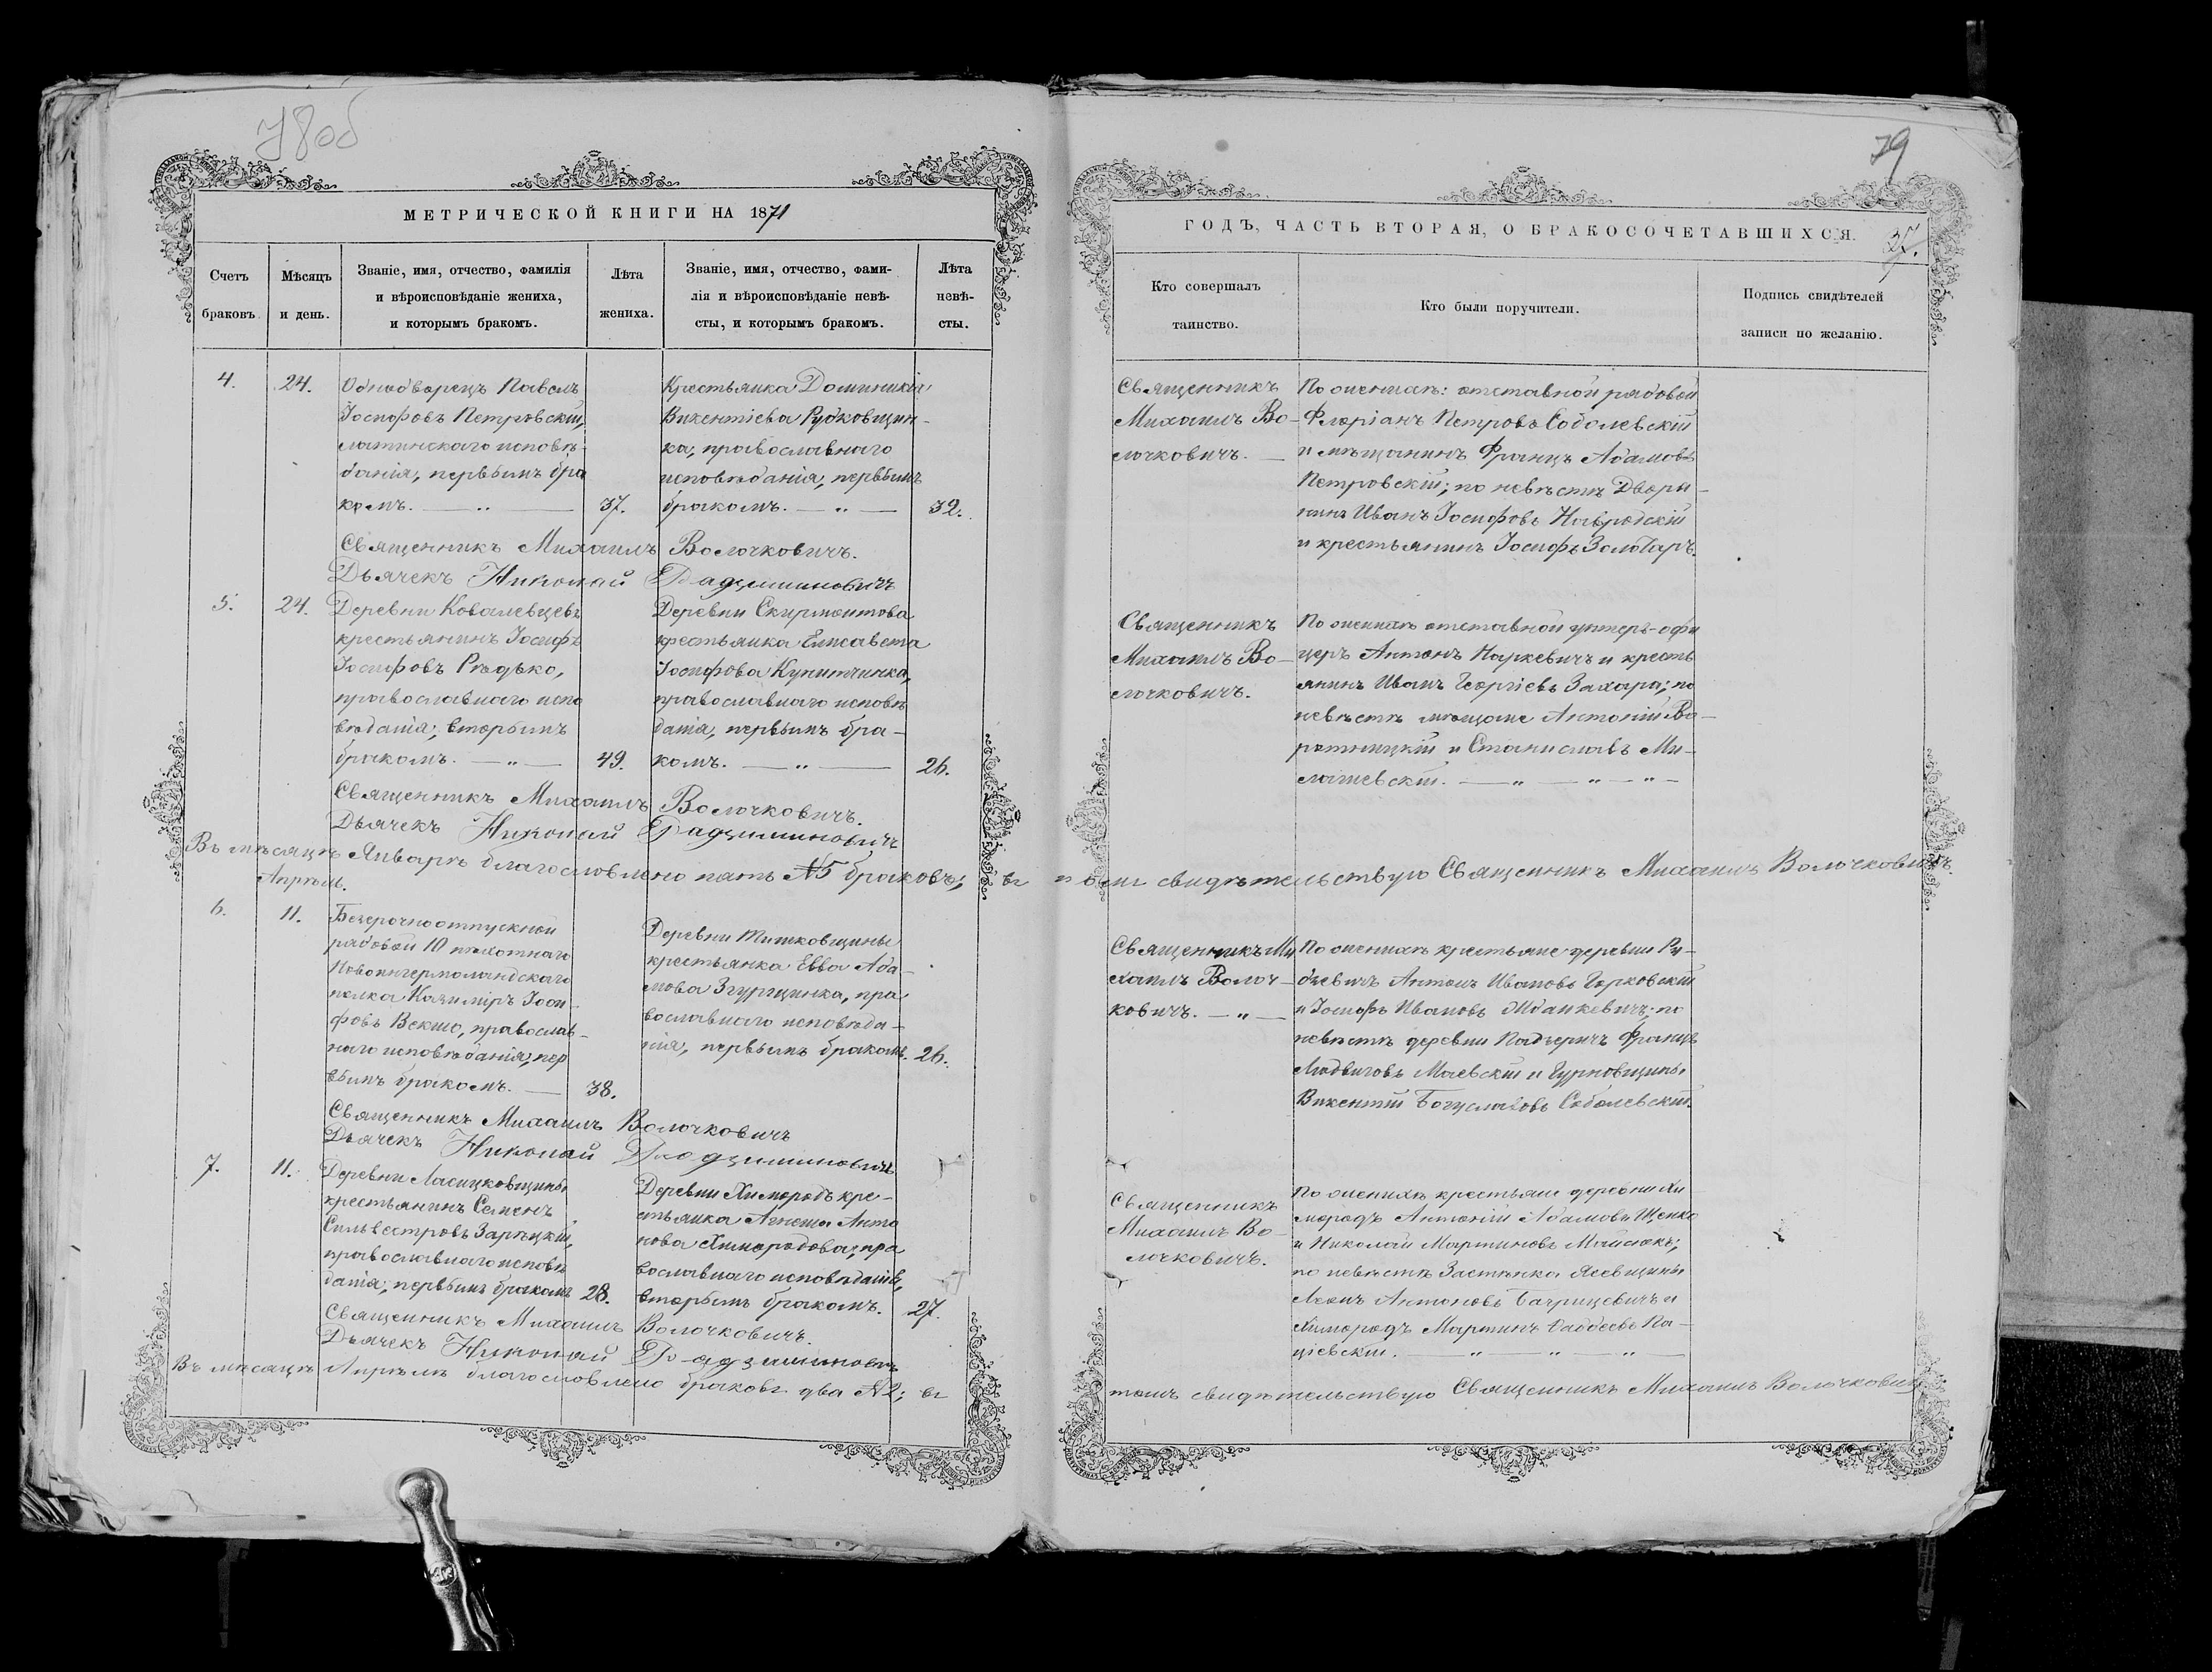 78об
МЕТРИЧЕСКОЙ КНИГИ НА 1871
Счетъ браковъ.
Мѣсяцъ и день.
Званіе, имя, отчество, фамилія
и вѣроисповѣданіе жениха,
и которымъ бракомъ.
Лѣта жениха.
Званіе, имя, отчество, фами-
лія и вѣроисповѣданіе невѣ-
сты, и которымъ бракомъ.
Лѣта невѣ-
сты.
4.
24.
Однодворецъ Павелъ
Іосифовъ Петровскій,
латинскаго исповѣ-
данія, первымъ бра
комъ. — „ —
37.
Крестьянка Доминикія
Викентіева Рудковщин-
ка, православнаго
исповѣданія, первымъ
бракомъ. — „ —
32.
Священникъ Михаилъ Волочковичъ.
Дьячекъ Николай Радзиминовичъ
5.
24.
Деревни Ковалевцевъ
крестьянинъ Іосифъ
Іосифовъ Рѣдько,
православнаго испо
вѣданія, вторымъ
бракомъ. — „ —
49.
Деревни Скирмонтова
крестьянка Елисавета
Іосифова Купитчинка,
православнаго исповѣ
данія, первымъ бра-
комъ. — „ —
26.
Священникъ Михаилъ Волочковичъ.
Дьячекъ Николай Радзиминовичъ
Въ мѣсяцѣ Январѣ благословлено пять №5 браковъ; въ
Апрѣль.
6.
11.
Безсрочноотпускной
рядовой 10 пѣхотнаго
Новоингермоландскаго
полка Казиміръ Іоси-
фовъ Векшо, православ-
наго исповѣданія, пер
вымъ бракомъ. —
38.
Деревни Тишковщины
крестьянка Евва Ада-
мова Згурщинка, пра
вославнаго исповѣда-
нія, первымъ бракомъ.
26.
Священникъ Михаилъ Волочковичъ
Дьячекъ Николай Радзиминовичъ
7.
11.
Деревни Ласицковщины
крестьянинъ Семенъ
Сильвестровъ Зарѣцкій,
православнаго исповѣ
данія, первымъ бракомъ
28.
Деревни Химородъ кре-
стьянка Агнеша Анто
нова Химородова, пра
вославнаго исповѣданія,
вторымъ бракомъ.
27.
Священникъ Михаилъ Волочковичъ.
Дьячекъ Николай Радзиминовичъ
Въ мѣсяцѣ Апрѣлѣ благословлено браковъ два №2; въ
79
ГОДЪ, ЧАСТЬ ВТОРАЯ, О БРАКОСОЧЕТАВШИХСЯ.
37.
Кто совершалъ
таинство.
Кто были поручители.
Подпись свидѣтелей
записи по желанію.
Священникъ
Михаилъ Во-
лочковичъ. —
По женихѣ: отставной рядовой
Флоріанъ Петровъ Соболевскій
и мѣщанинъ Францъ Адамовъ
Петровскій; по невѣстѣ Дворя-
нинъ Иванъ Іосифовъ Навродскій
и крестьянинъ Іосифъ Золотарь.
Священникъ
Михаилъ Во-
лочковичъ.
По женихѣ отставной унтеръ-офи
церъ Антонъ Наркевичъ и кресть
янинъ Иванъ Георгіевъ Захара; по
невѣстѣ мѣщане Антоній Во-
ротницкій и Станиславъ Ми-
лашевскій. — „ — „ — „ —
томъ свидѣтельствую Священникъ Михаилъ Волочковичъ.
Священникъ Ми
хаилъ Волоч-
ковичъ. — „ —
По женихѣ крестьяне деревни Ру-
бъевичъ Антонъ Ивановъ Горковскій
и Іосифъ Ивановъ Жданкевичъ; по
невѣстѣ деревни Падъеричъ Францъ
Людвиговъ Маевскій и Гурновщины
Викентій Богуславовъ Соболевскій.
Священникъ
Михаилъ Во-
лочковичъ.
По женихѣ крестьяне деревни Хи
мородъ Антоній Адамовъ Щенко
и Николай Мартиновъ Майсюкъ;
по невѣстѣ Застѣнка Ясевщины
Леонъ Антоновъ Багрицевичъ и
Химородъ Мартинъ Фаддеевъ Па-
ціевскій. — „ — „ — „ —
томъ свидѣтельствую Священникъ Михаилъ Волочковичъ